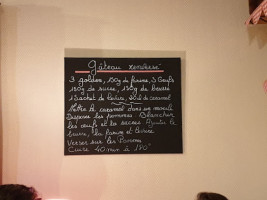 Gâteau renversé
3 golden, 150g de farine, 3 Oeufs
150g de sucre, 150g de beurre
1 Sachet de levure, 20cl de caramel
Mettre le caramel dans un moule
Disposer les pommes Blanchir
les œufs et le sucre Ajouter le
beurre, la farine et levure
Verser sur les Pommes
Cuire 40 min à 180°